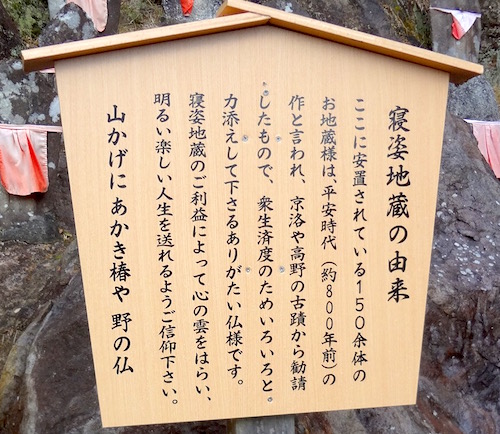 寝姿地蔵の由来
ここに安置されている１５０余体の
お地蔵様は、平安時代（約８００年前）の
作と言われ、京洛や高野の古蹟から勧請
したもので、衆生済度のためいろいろと
力添えして下さるありがたい仏様です。
寝姿地蔵のご利益によって心の雲をはらい、
明るい楽しい人生を送れるようご信仰下さい。
山かげに あかき椿や 野の仏